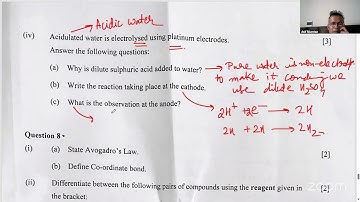 → Acidic water
(iv) Acidulated water is electrolysed using platinum electrodes. [3]
Answer the following questions:
(a) Why is dilute sulphuric acid added to water? → Pure water is non-electro
to make it conduc, we
use dilute H₂SO₄
(b) Write the reaction taking place at the cathode.
2H⁺ + 2e⁻ → 2H
(c) What is the observation at the anode?
2H + 2H → 2H₂
Question 8
(i) (a) State Avogadro's Law. [2]
(b) Define Co-ordinate bond.
(ii) Differentiate between the following pairs of compounds using the reagent given in [2]
the bracket: